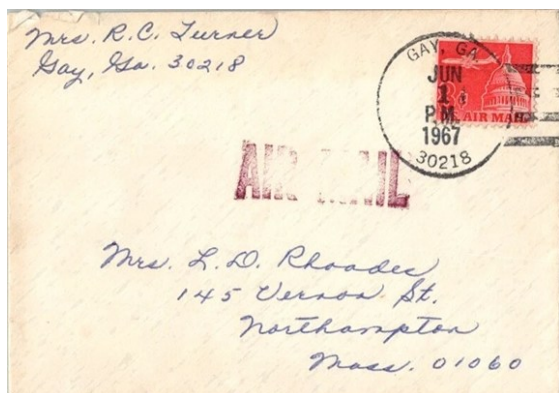 Mrs. R.C. Turner
Gay, Ga. 30218
GAY, GA.
JUN
1
P.M.
1967
30218
8¢
AIR MAIL
AIR MAIL
Mrs. L. D. Rhoades
145 Vernon St.
Northampton
Mass. 01060